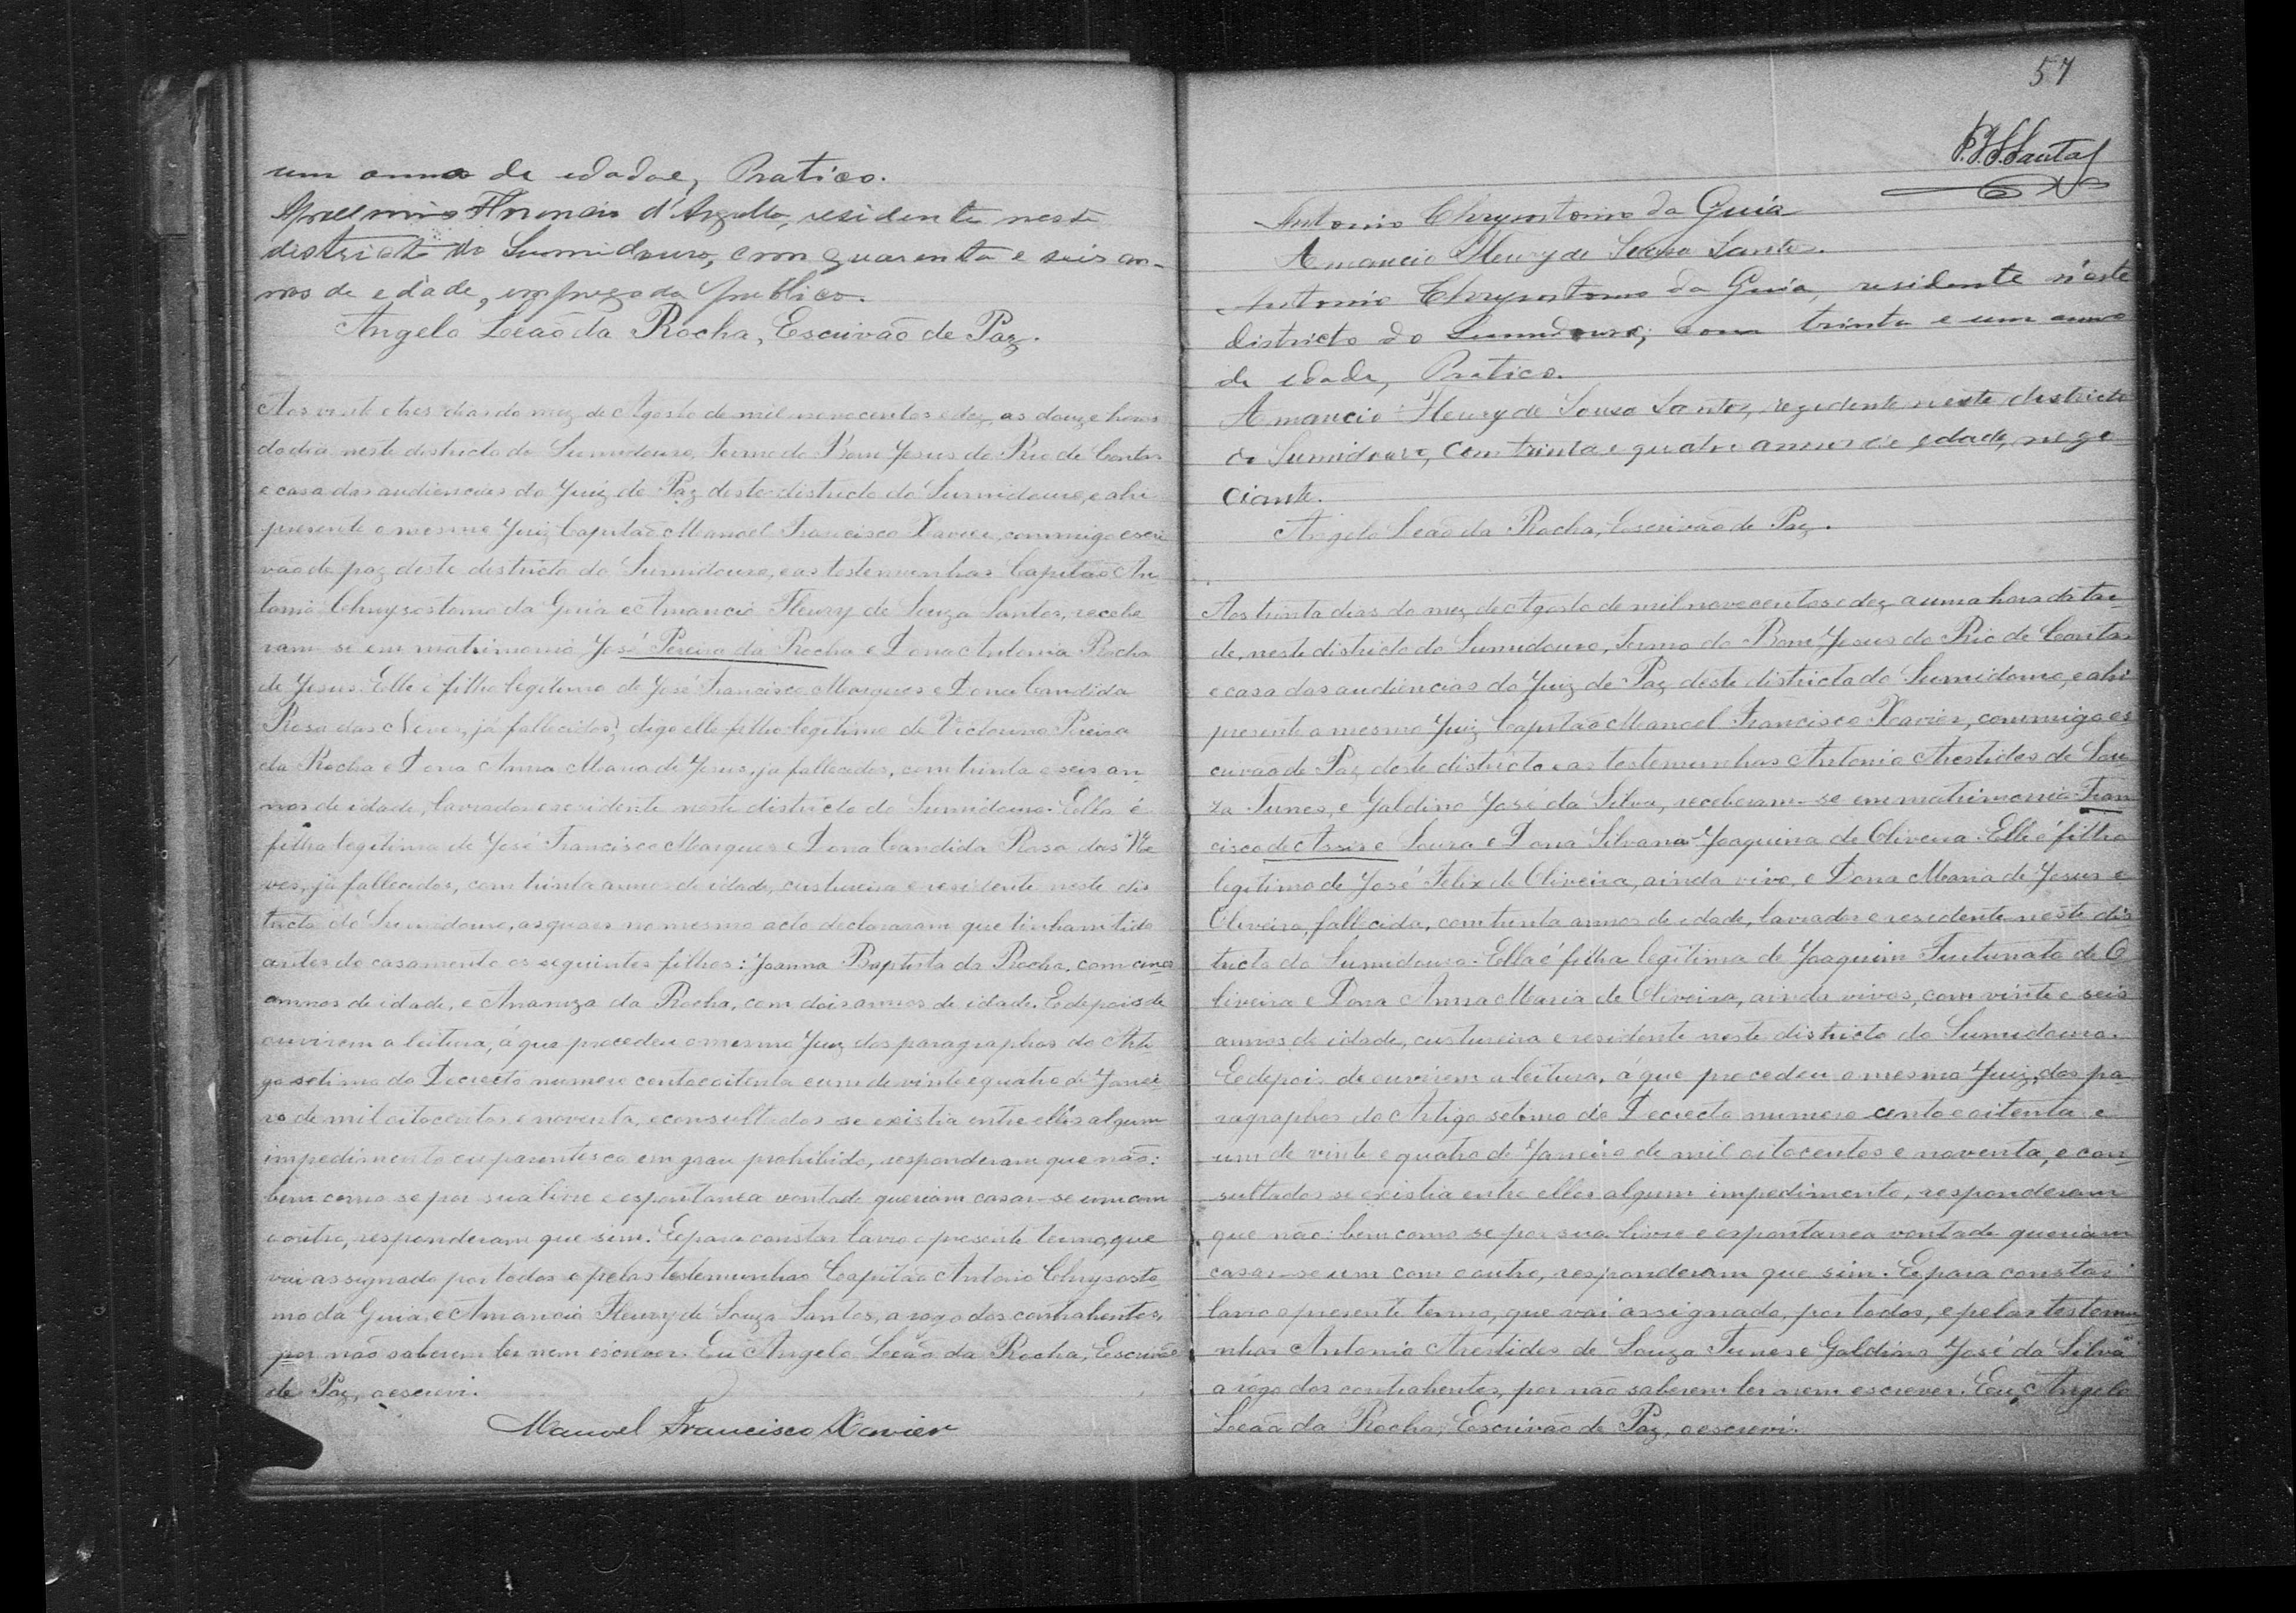 um anno de edade, Pratico.
d'Argollo, residente neste
districto do Sumidouro, com quarenta e seis an-
nos de edade, empregado publico.
Angelo Leão da Rocha, Escrivão de Paz.
Aos vinte e tres dias do mez de Agosto de mil novecentos e dez, as douze horas
do dia neste districto do Sumidouro, Termo do Bom Jesus do Rio de Contas
e casa das audiencias do Juiz de Paz deste districto do Sumidouro, e ahi
presente o mesmo Juiz Capitão Manoel Francisco Xavier, commigo escri
vão de paz deste districto do Sumidouro, e as testemunhas Capitão An
tonio Chrysostomo da Guia e Amancio Fleury de Souza Santos, recebe
ram-se em matrimonio José Pereira da Rocha e Dona Antonia Rocha
de Jesus. Elle é filho legitimo de José Francisco Marques e Dona Candida
Rosa das Neves, já fallecidos; digo elle filho legitimo de Victorino Pereira
da Rocha e Dona Anna Maria de Jesus, ja fallecidos, com trinta e seis an
nos de idade, lavrador e residente neste districto do Sumidouro. Ella é
filha legitima de José Francisco Marques e Dona Candida Rosa das Ne
ves, já fallecidos, com trinta annos de idade, custureira e residente neste dis
tricto do Sumidouro, os quaes no mesmo acto declararam que tinham tido
antes do casamento os seguintes filhos: Joanna Baptista da Rocha, com cinco
annos de idade, e da Rocha, com dois annos de idade. E depois de
ouvirem a leitura, á que procedeu o mesmo Juiz dos paragraphos do Arti
go setimo do Decreto numero cento e oitenta e um de vinte e quatro de Janei
ro de mil oitocentos e noventa, e consultados se existia entre elles algum
impedimento ou parentesco em grau prohibido, responderam que não:
bem como se por sua livre e espontanea vontade queriam casar-se um com
o outro, responderam que sim. E para constar lavro o presente termo, que
vai assignado por todos e pelas testemunhas Capitão Antonio Chrysosto
mo da Guia, e Amancio Fleury de Souza Santos, a rogo dos contrahentes,
por não saberem ler nem escrever. Eu Angelo Leão da Rocha, Escrivão
de Paz, o escrevi.
Manoel Francisco Xavier
57
Antonio Chrysostomo da Guia
Amancio Fleury de Souza Santos.
Antonio Chrysostomo da Guia, residente n'este
districto do Sumidouro, com trinta e um anno
de edade, Pratico.
Amancio Fleury de Sousa Santos, rezidente neste districto
do Sumidouro, com trinta e quatro annos de edade, nego
ciante.
Angelo Leão da Rocha, Escrivão de Paz.
Aos trinta dias do mez de Agosto de mil novecentos e dez, a uma hora da tar
de, neste districto do Sumidouro, Termo do Bom Jesus do Rio de Contas
e casa das audiencias do Juiz de Paz deste districto do Sumidouro, e ahi
presente o mesmo Juiz Capitão Manoel Francisco Xavier, commigo es
crivão de Paz deste districto e as testemunhas Antonio Arestides de Sou
za Tunes, e Galdino José da Silva, receberam-se em matrimonio Fran
cisco de Assis e Souza e Dona Silvana Joaquina de Oliveira. Elle é filho
legitimo de José Felix de Oliveira, ainda vivo, e Dona Maria de Jesus e
Oliveira, fallecida, com trinta annos de idade, lavrador e residente neste dis
tricto do Sumidouro. Ella é filha legitima de Joaquim Furtunato de O
liveira e Dona Anna Maria de Oliveira, ainda vivos, com vinte e seis
annos de idade, custureira e residente neste districto do Sumidouro.
E depois de ouvirem a leitura, á que procedeu o mesmo Juiz, dos pa
ragraphos do Artigo setimo do Decreto numero cento e oitenta e
um de vinte e quatro de Janeiro de mil oitocentos e noventa, e con
sultados se existia entre elles algum impedimento, responderam
que não: bem como se por sua livre e espontanea vontade queriam
casar-se um com o outro, responderam que sim. E para constar
lavro o presente termo, que vai assignado, por todos, e pelas testemu
nhas Antonio Arestides de Souza Tunes e Galdino José da Silva
a rogo dos contrahentes, por não saberem ler nem escrever. Eu, Angelo
Leão da Rocha, Escrivão de Paz, o escrevi.